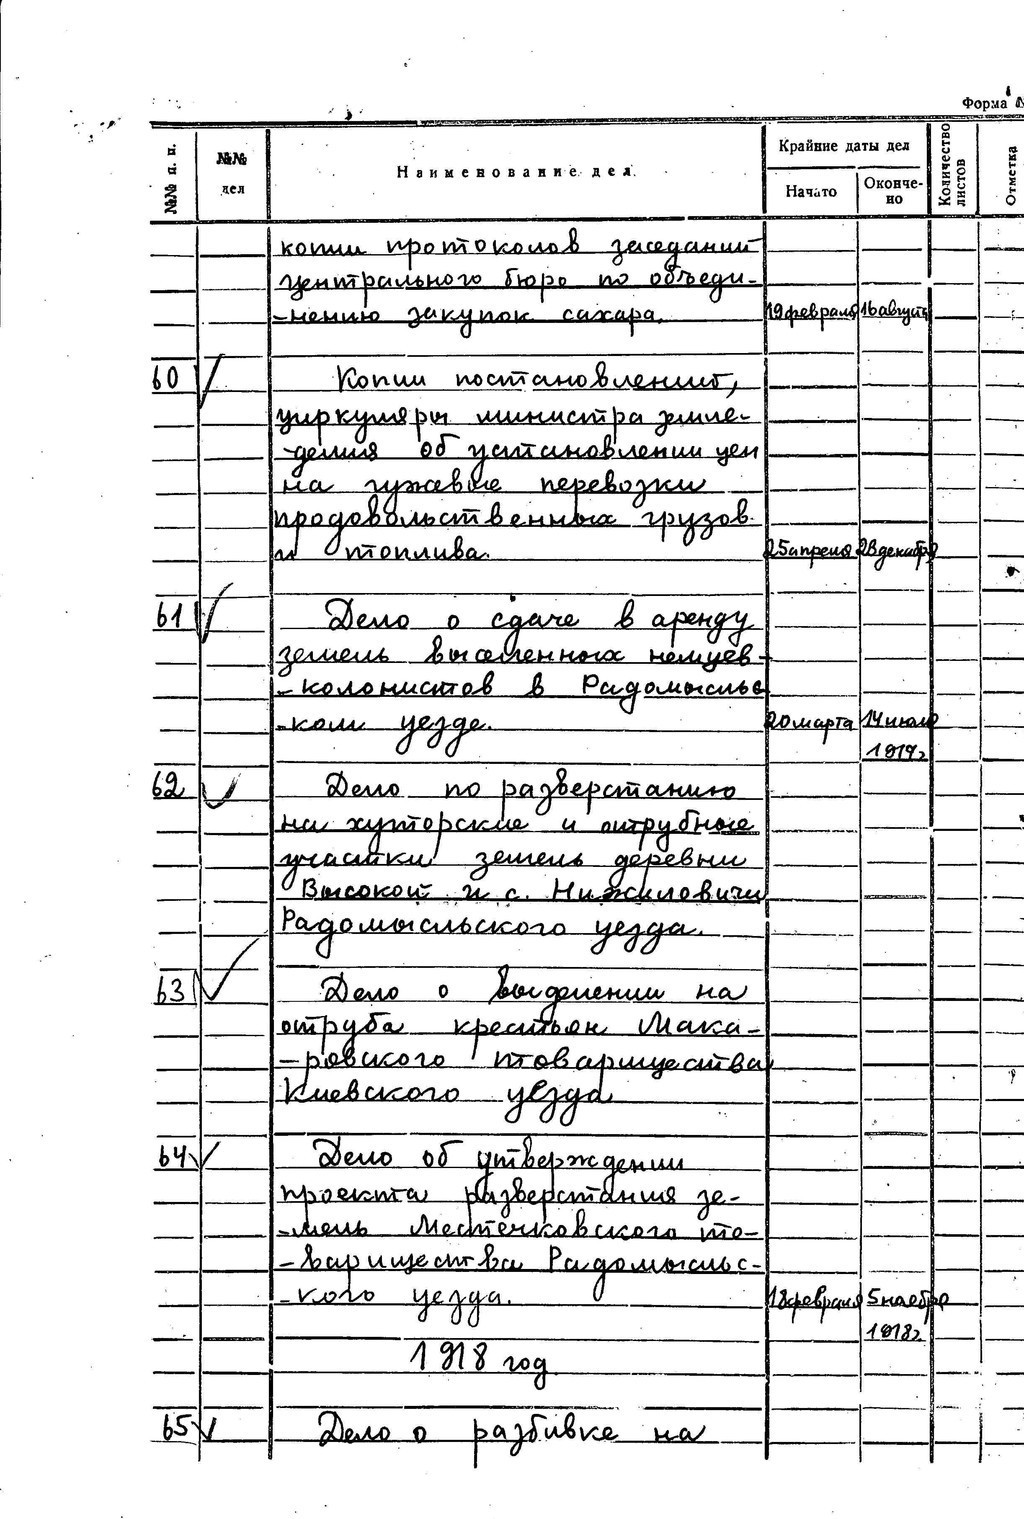 Форма
№№ п. п.
№№ дел
Наименование дел.
Крайние даты дел
Начато
Окончено
Количество листов
Отметка
копии протоколов заседаний
центрального бюро по объеди-
-нению закупок сахара. 19 февраля 16 августа
60 Копии постановлений,
циркуляры министра земле-
-делия об установлении цен
на гужевые перевозки
продовольственных грузов
и топлива. 25 апреля 28 декабр
61 Дело о сдаче в аренду
земель выселенных немцев-
-колонистов в Радомысльс
-ком уезде. 20 марта 14 июля
1917г
62 Дело по разверстанию
на хуторские и отрубные
участки земель деревни
Высокой и с. Нижиловичи
Радомысльского уезда.
63 Дело о выделении на
отруба крестьян Мака-
-ровского товарищества
Киевского уезда
64 Дело об утверждении
проекта разверстания зе-
-мель Местечковского то-
-варищества Радомысльс-
-кого уезда. 18 февраля 5 ноября
1918г
1918 год
65 Дело о разбивке на